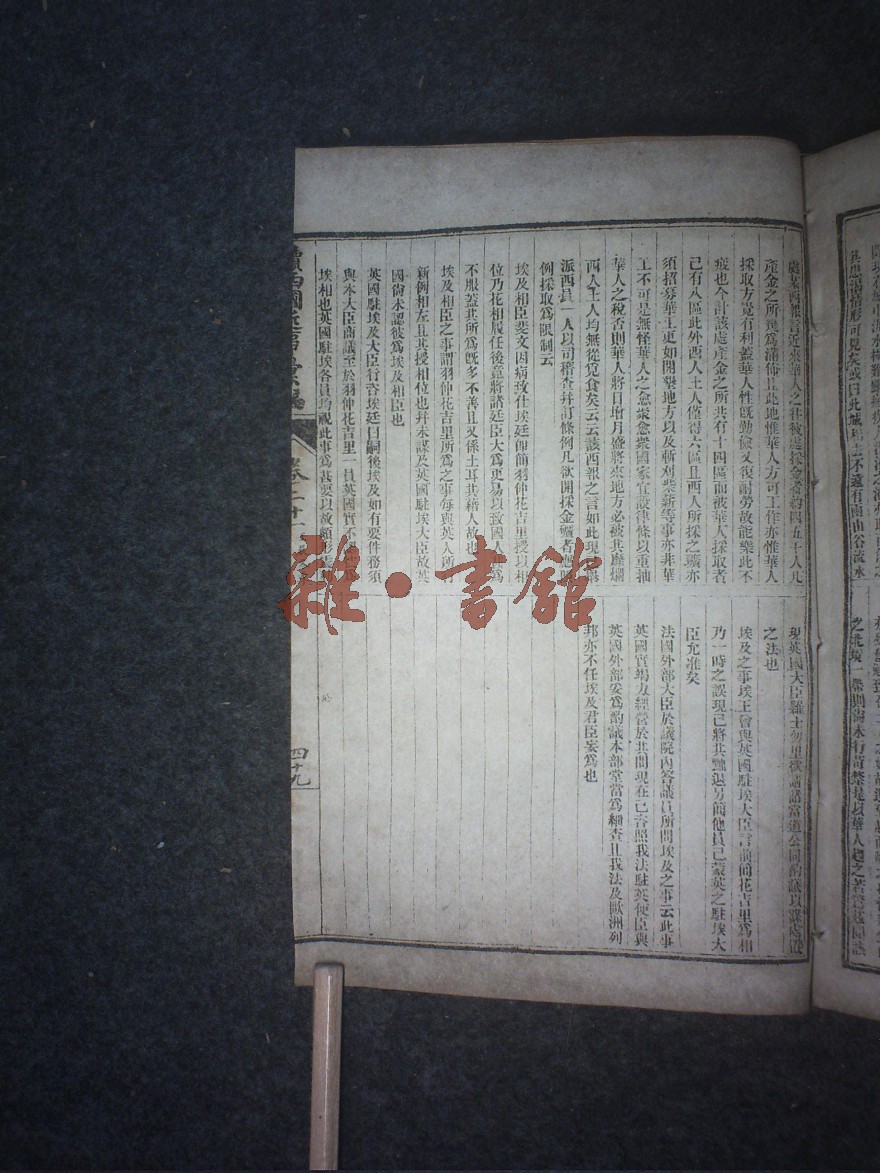 處某西報言近來華人之往彼處採金者約四五千人凡
產金之所幾為滿佈且此地惟華人方可工作亦惟華人
採取方覺有利蓋華人性既勤儉又復耐勞故能樂此不
疲也今計該處產金之所共有十四區而被華人採取者
已有八區此外西人土人僅得六區且西人所採之礦亦
須招募華工更如開墾地方以及斬刈柴薪等事亦非華
工不可是無怪華人之愈聚愈眾國家宜設律條以重抽
華人之稅否則華人將日增月盛將來地方必被其
西人土人均無從覓食矣云云該西報之言如此現
派西員一人以司稽查并訂條例凡欲開採金礦者
例採取為限制云
埃及相臣斐文因病致仕埃廷即簡羽仲花吉里授以相
位乃花相履任後竟將諸廷臣大為更易以致國人
不服蓋其所為既多不善且又係土耳其籍人故也
埃及相臣之事謂羽仲花吉里所為之事每與英人所
新例相左且其授相位也并未謀及英國駐埃大臣故英
國尚未認彼為埃及相臣也
英國駐埃及大臣行咨埃廷曰嗣後埃及如有要件務須
與本大臣商議至於羽仲花吉里一員英國實不
埃相也英國駐埃各員均視此事為甚要以故頗形
現英國大臣羅士勿里擬請諸當道公同酌議以謀處置
之法也
埃及之事埃王曾與英國駐埃大臣言前簡花吉里為相
乃一時之誤現已將其黜退另簡他員已蒙英之駐埃大
臣允准矣
法國外部大臣於議院內答議員所問埃及之事云此事
英國實竭力經營於其間現在已咨照我法駐英使臣與
英國外部妥為酌議本部堂當為細查且我法及歐洲列
邦亦不任埃及君臣妄為也
續西國近事彙編
卷二十一
四十九
雜·書館